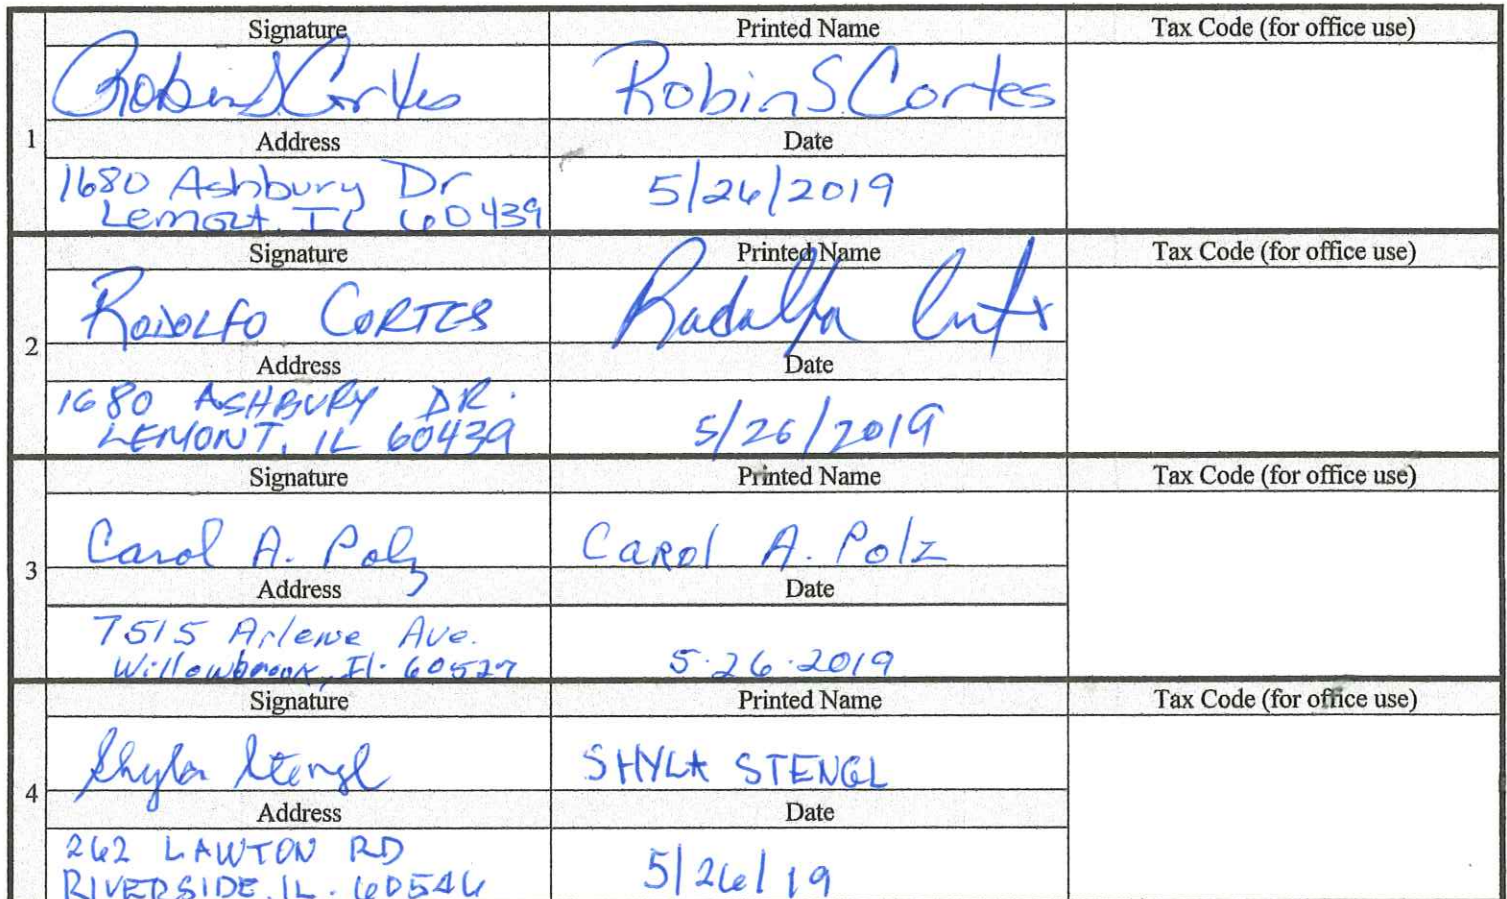 Signature Printed Name Tax Code (for office use)
Robin S. Cortes Robin S. Cortes
1
Address Date
1680 Ashbury Dr 5/26/2019
Lemont, IL 60439
Signature Printed Name Tax Code (for office use)
RODOLFO CORTES Rodolfo Cortes
2
Address Date
1680 ASHBURY DR. 5/26/2019
LEMONT, IL 60439
Signature Printed Name Tax Code (for office use)
Carol A. Polz Carol A. Polz
3
Address Date
7515 Arlene Ave.
Willowbrook, Il. 60527 5.26.2019
Signature Printed Name Tax Code (for office use)
Shyla Stengl SHYLA STENGL
4
Address Date
262 LAWTON RD 5/26/19
RIVERSIDE, IL. 60546